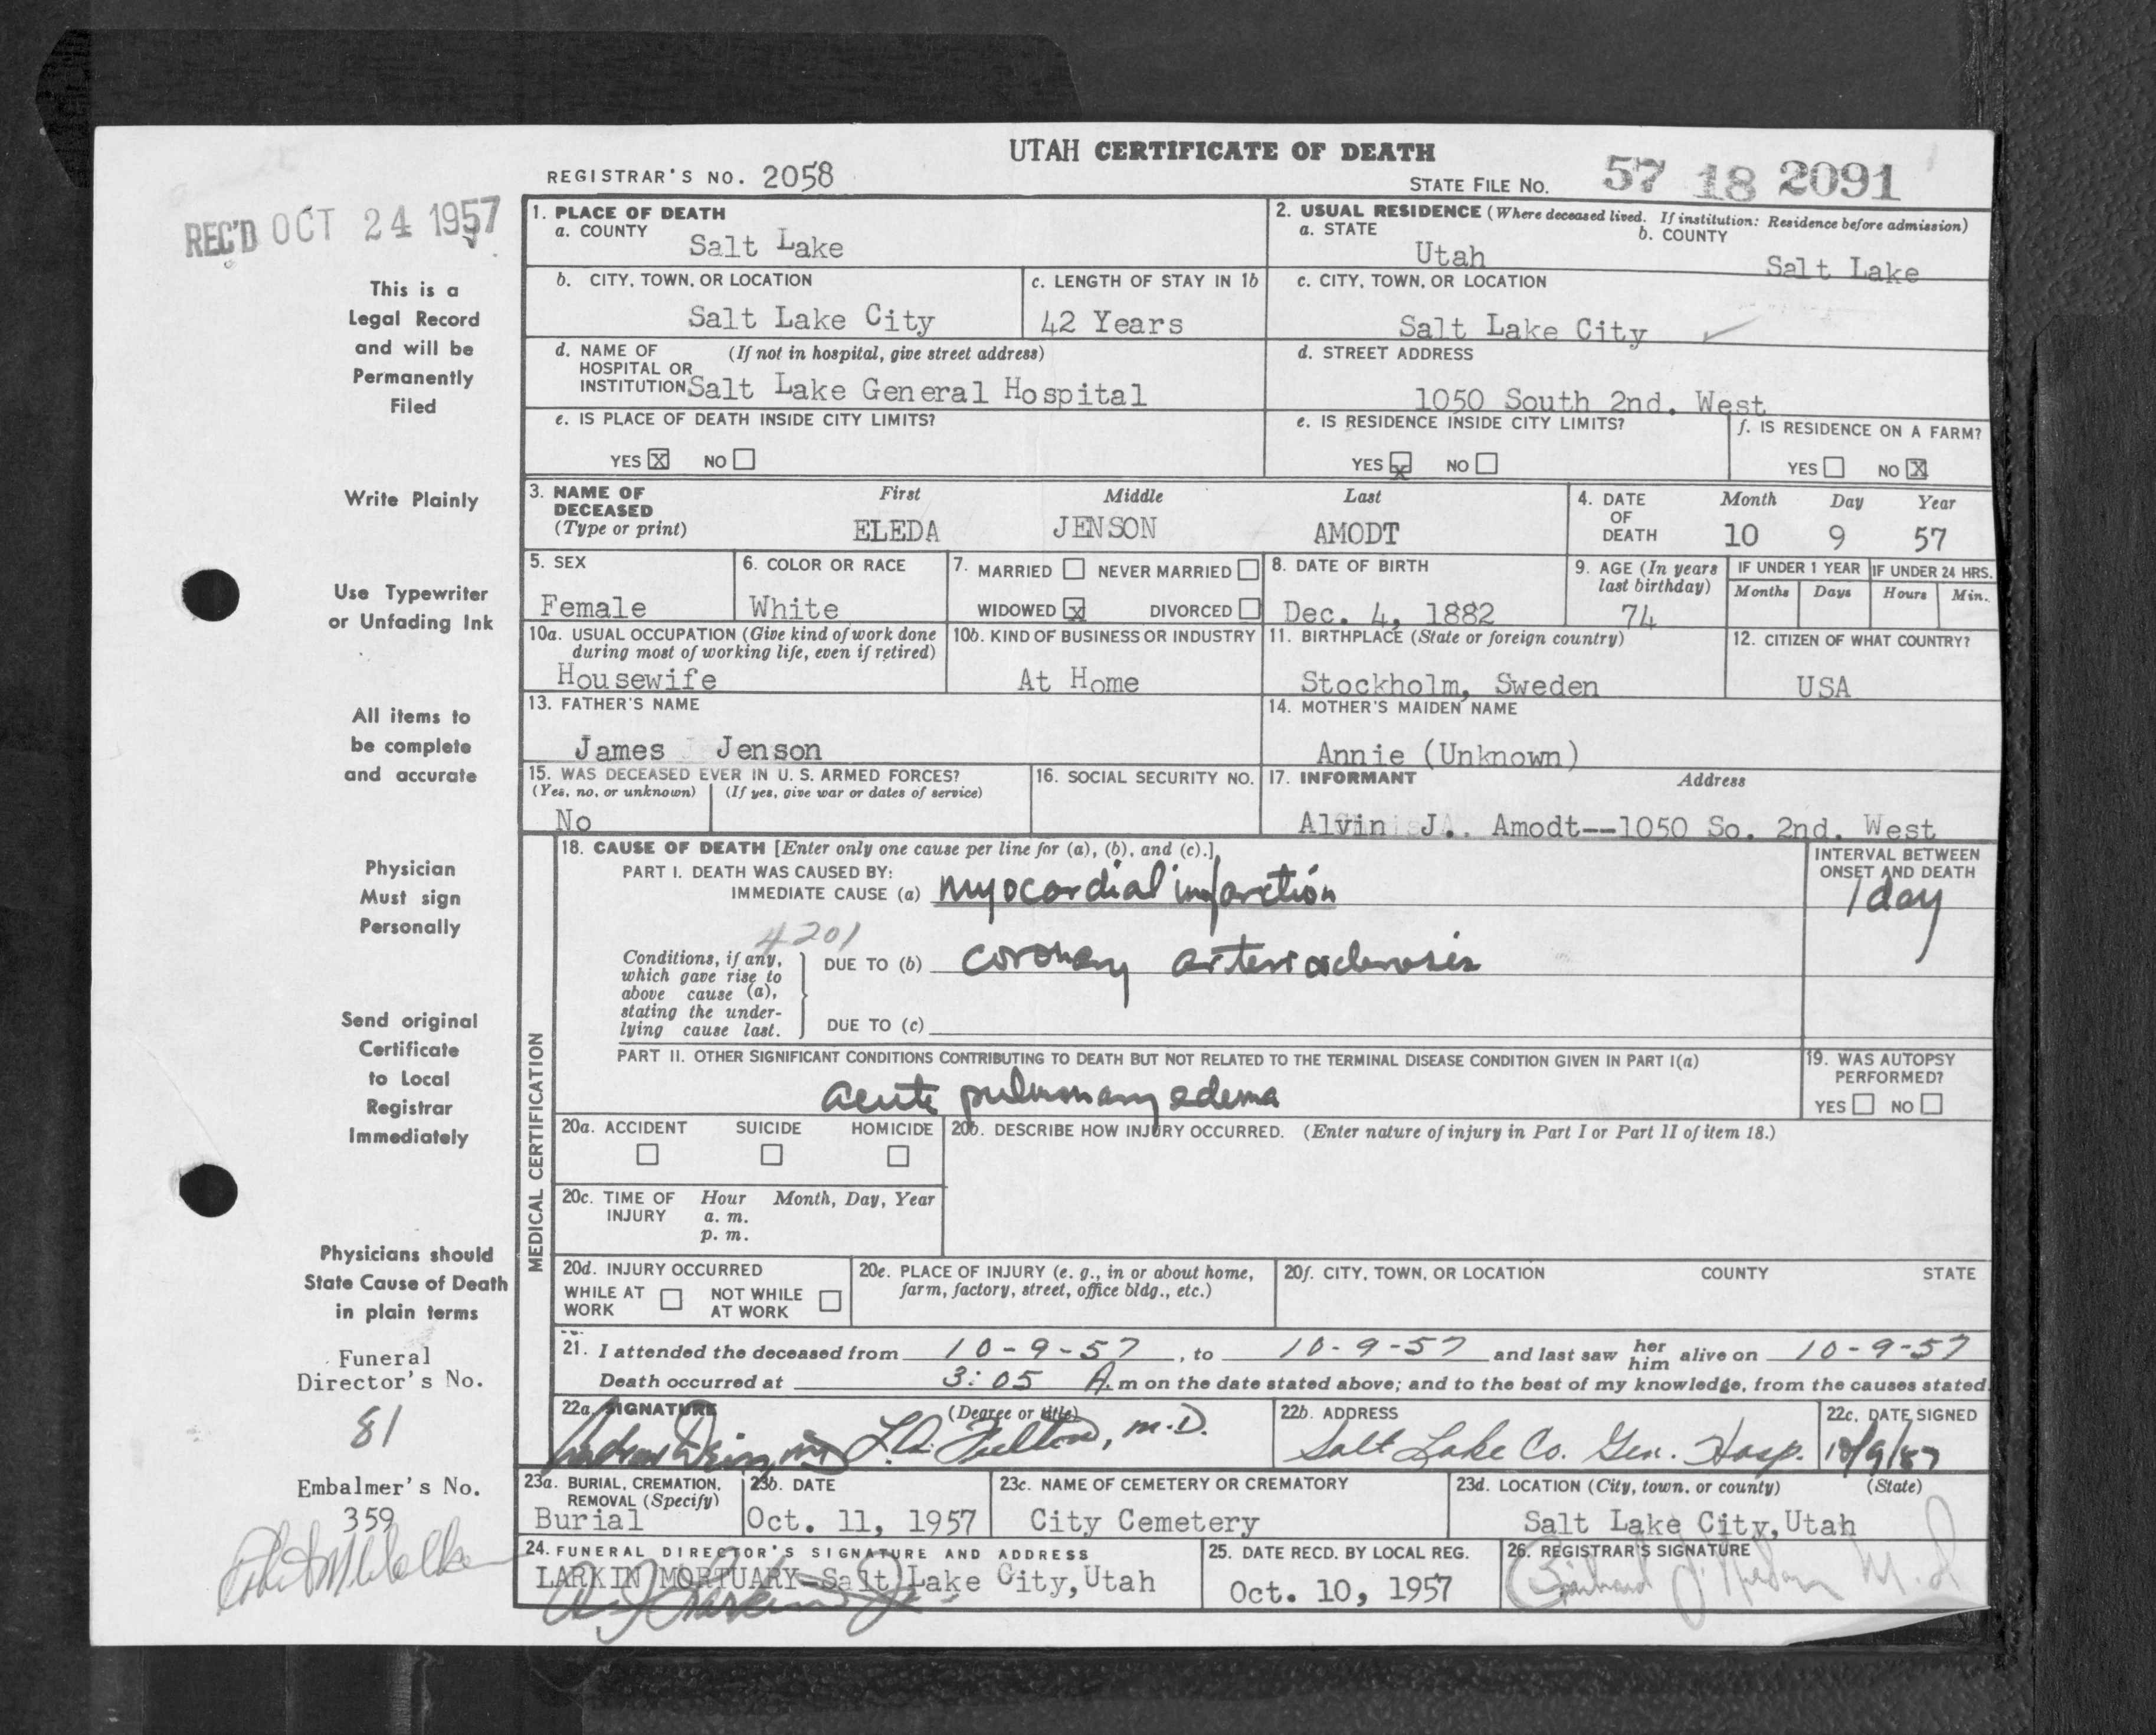 UTAH CERTIFICATE OF DEATH
REGISTRAR'S NO. 2058
STATE FILE NO. 57 18 2091
REC'D OCT 24 1957
This is a
Legal Record
and will be
Permanently
Filed
Write Plainly
Use Typewriter
or Unfading Ink
All items to
be complete
and accurate
Physician
Must sign
Personally
Send original
Certificate
to Local
Registrar
Immediately
Physicians should
State Cause of Death
in plain terms
Funeral
Director's No.
81
Embalmer's No.
359
1. PLACE OF DEATH
a. COUNTY
Salt Lake
2. USUAL RESIDENCE (Where deceased lived. If institution: Residence before admission)
a. STATE
Utah
b. COUNTY
Salt Lake
b. CITY, TOWN, OR LOCATION
Salt Lake City
c. LENGTH OF STAY IN 1b
42 Years
c. CITY, TOWN, OR LOCATION
Salt Lake City
d. NAME OF (If not in hospital, give street address)
HOSPITAL OR
INSTITUTION Salt Lake General Hospital
d. STREET ADDRESS
1050 South 2nd. West
e. IS PLACE OF DEATH INSIDE CITY LIMITS?
YES X NO
e. IS RESIDENCE INSIDE CITY LIMITS?
YES X NO
f. IS RESIDENCE ON A FARM?
YES NO X
3. NAME OF
DECEASED
(Type or print)
First Middle Last
ELEDA JENSON AMODT
4. DATE
OF
DEATH
Month Day Year
10 9 57
5. SEX
Female
6. COLOR OR RACE
White
7. MARRIED NEVER MARRIED
WIDOWED X DIVORCED
8. DATE OF BIRTH
Dec. 4, 1882
9. AGE (In years
last birthday)
74
IF UNDER 1 YEAR
Months Days
IF UNDER 24 HRS.
Hours Min.
10a. USUAL OCCUPATION (Give kind of work done
during most of working life, even if retired)
Housewife
10b. KIND OF BUSINESS OR INDUSTRY
At Home
11. BIRTHPLACE (State or foreign country)
Stockholm, Sweden
12. CITIZEN OF WHAT COUNTRY?
USA
13. FATHER'S NAME
James Jenson
14. MOTHER'S MAIDEN NAME
Annie (Unknown)
15. WAS DECEASED EVER IN U. S. ARMED FORCES?
(Yes, no, or unknown) (If yes, give war or dates of service)
No
16. SOCIAL SECURITY NO.
17. INFORMANT Address
Alvin J. Amodt--1050 So. 2nd. West
MEDICAL CERTIFICATION
18. CAUSE OF DEATH [Enter only one cause per line for (a), (b), and (c).]
PART I. DEATH WAS CAUSED BY:
IMMEDIATE CAUSE (a) myocardial infarction
INTERVAL BETWEEN
ONSET AND DEATH
1 day
4201
Conditions, if any,
which gave rise to
above cause (a),
stating the under-
lying cause last.
DUE TO (b) coronary arteriosclerosis
DUE TO (c)
PART II. OTHER SIGNIFICANT CONDITIONS CONTRIBUTING TO DEATH BUT NOT RELATED TO THE TERMINAL DISEASE CONDITION GIVEN IN PART I(a)
acute pulmonary edema
19. WAS AUTOPSY
PERFORMED?
YES NO
20a. ACCIDENT SUICIDE HOMICIDE
20b. DESCRIBE HOW INJURY OCCURRED. (Enter nature of injury in Part I or Part II of item 18.)
20c. TIME OF Hour Month, Day, Year
INJURY a. m.
p. m.
20d. INJURY OCCURRED
WHILE AT NOT WHILE
WORK AT WORK
20e. PLACE OF INJURY (e. g., in or about home,
farm, factory, street, office bldg., etc.)
20f. CITY, TOWN, OR LOCATION COUNTY STATE
21. I attended the deceased from 10-9-57, to 10-9-57 and last saw her him alive on 10-9-57
Death occurred at 3:05 A. m on the date stated above; and to the best of my knowledge, from the causes stated
22a. SIGNATURE (Degree or title)
L.A. Fulton, M.D.
22b. ADDRESS
Salt Lake Co. Gen. Hosp.
22c. DATE SIGNED
10/9/57
23a. BURIAL, CREMATION,
REMOVAL (Specify)
Burial
23b. DATE
Oct. 11, 1957
23c. NAME OF CEMETERY OR CREMATORY
City Cemetery
23d. LOCATION (City, town, or county) (State)
Salt Lake City, Utah
24. FUNERAL DIRECTOR'S SIGNATURE AND ADDRESS
LARKIN MORTUARY-Salt Lake City, Utah
25. DATE RECD. BY LOCAL REG.
Oct. 10, 1957
26. REGISTRAR'S SIGNATURE
M.D